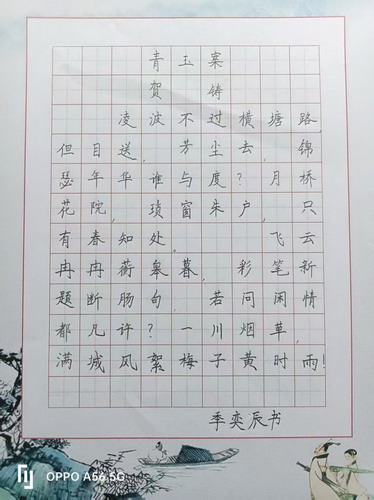 青玉案
贺铸
凌波不过横塘路,
但目送,芳尘去,锦
瑟年华谁与度?月桥
花院,琐窗朱户,只
有春知处。飞云
冉冉蘅皋暮,彩笔新
题断肠句,若问闲情
都几许?一川烟草,
满城风絮梅子黄时雨!
季奕辰书
OPPO A56 5G